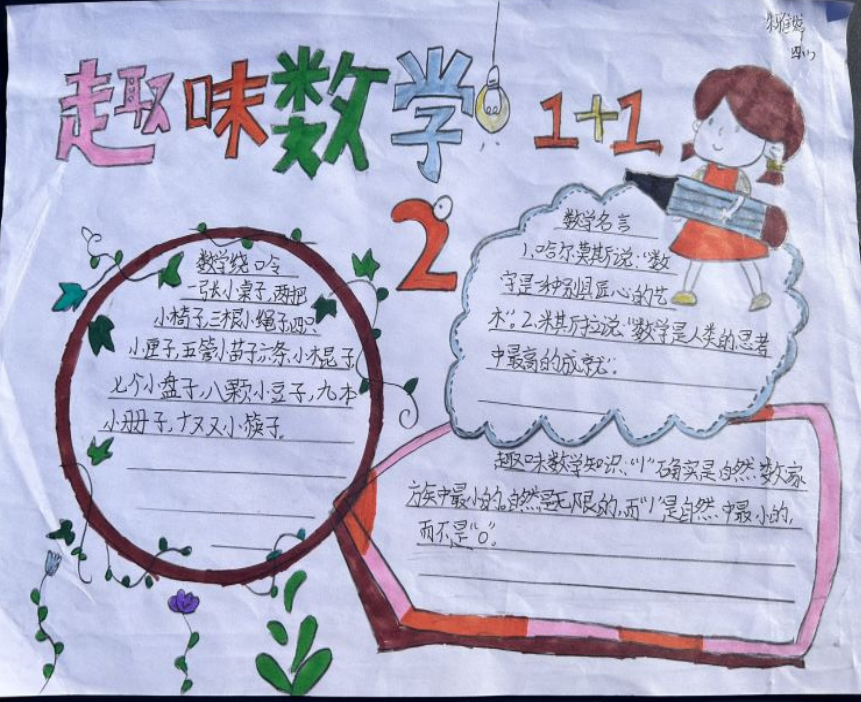 四(1)
趣味数学
1+1
2
数学绕口令
一张小桌子,两把
小椅子,三根小绳子,四只
小匣子,五管小笛子,六条小木棍子
七个小盘子,八颗小豆子,九本
小册子,十双小筷子。
数学名言
1.哈尔莫斯说:“数
字是一种别具匠心的艺
术”。2.米斯拉说:“数学是人类的思考
中最高的成就”。
趣味数学知识:“1”确实是自然数家
族中最小的。自然是无限的,而“1”是自然中最小的,
而不是“0”。